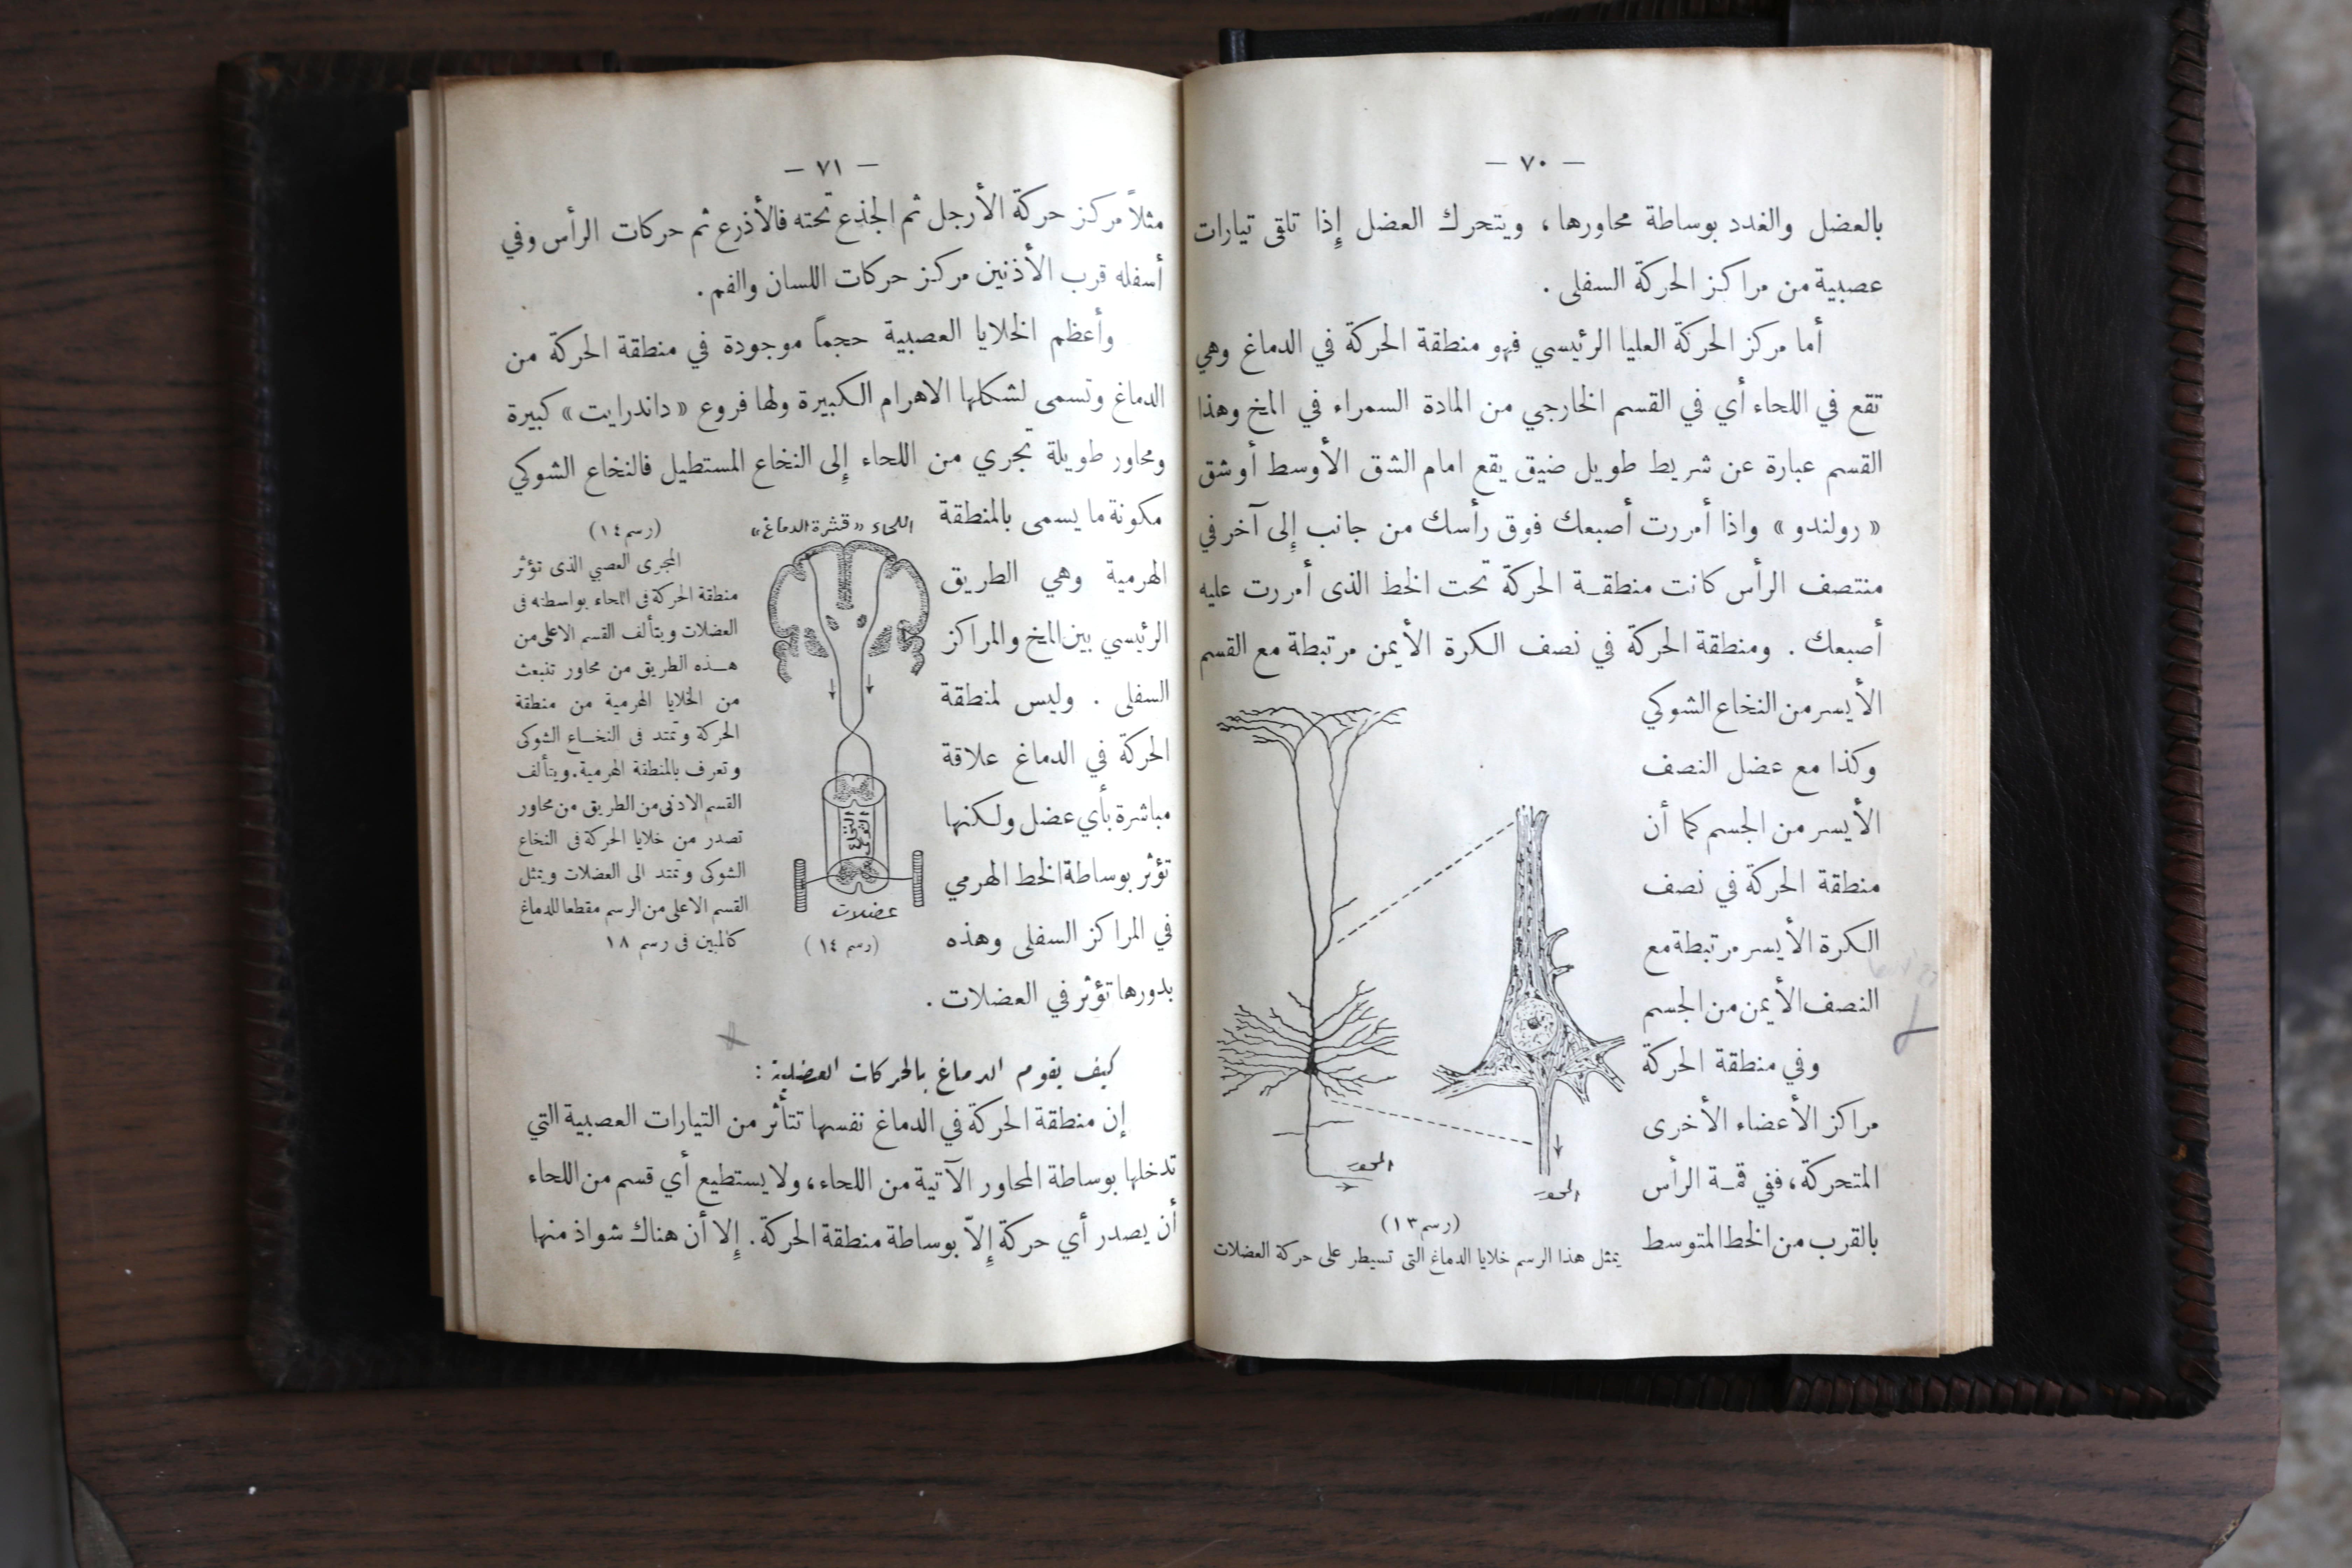 — ٧٠ —
بالعضل والغدد بوساطة محاورها، ويتحرك العضل إِذا تلقى تيارات
عصبية من مراكز الحركة السفلى .
أما مركز الحركة العليا الرئيسي فهو منطقة الحركة في الدماغ وهي
تقع في اللحاء أي في القسم الخارجي من المادة السمراء في المخ وهذا
القسم عبارة عن شريط طويل ضيق يقع امام الشق الأوسط أو شق
« رولندو » واذا أمررت أصبعك فوق رأسك من جانب إِلى آخر في
منتصف الرأس كانت منطقـة الحركة تحت الخط الذى أمررت عليه
أصبعك . ومنطقة الحركة في نصف الكرة الأيمن مرتبطة مع القسم
الأيسر من النخاع الشوكي
وكذا مع عضل النصف
الأيسر من الجسم كما أن
منطقة الحركة في نصف
الكرة الأيسر مرتبطة مع
النصف الأيمن من الجسم
وفي منطقة الحركة
مراكز الأعضاء الأخرى
المتحركة، ففي قمـة الرأس
بالقرب من الخط المتوسط
المحور
المحور
(رسم ١٣)
يمثل هذا الرسم خلايا الدماغ التى تسيطر على حركة العضلات
— ٧١ —
مثلاً مركز حركة الأرجل ثم الجذع تحته فالأذرع ثم حركات الرأس وفي
أسفله قرب الأذنين مركز حركات اللسان والفم .
وأعظم الخلايا العصبية حجماً موجودة في منطقة الحركة من
الدماغ وتسمى لشكلها الاهرام الكبيرة ولها فروع « داندرايت » كبيرة
ومحاور طويلة تجري من اللحاء إِلى النخاع المستطيل فالنخاع الشوكي
مكونة ما يسمى بالمنطقة
الهرمية وهي الطريق
الرئيسي بين المخ والمراكز
السفلى . وليس لمنطقة
الحركة في الدماغ علاقة
مباشرة بأي عضل ولكنها
تؤثر بوساطة الخط الهرمي
في المراكز السفلى وهذه
بدورها تؤثر في العضلات .
اللحاء « قشرة الدماغ»
النخاع الشوكي
عضلات
(رسم ١٤)
(رسم ١٤)
المجرى العصبي الذى تؤثر
منطقة الحركة فى اللحاء بواسطته فى
العضلات ويتألف القسم الاعلى من
هـذه الطريق من محاور تنبعث
من الخلايا الهرمية من منطقة
الحركة وتمتد فى النخـاع الشوكى
وتعرف بالمنطقة الهرمية. ويتألف
القسم الادنى من الطريق من محاور
تصدر من خلايا الحركة فى النخاع
الشوكى وتمتد الى العضلات ويمثل
القسم الاعلى من الرسم مقطعا للدماغ
كالمبين فى رسم ١٨
كيف يقوم الدماغ بالحركات العضلية :
إن منطقة الحركة في الدماغ نفسها تتأثر من التيارات العصبية التي
تدخلها بوساطة المحاور الآتية من اللحاء، ولا يستطيع أي قسم من اللحاء
أن يصدر أي حركة إِلاّ بوساطة منطقة الحركة. إِلا أن هناك شواذ منها